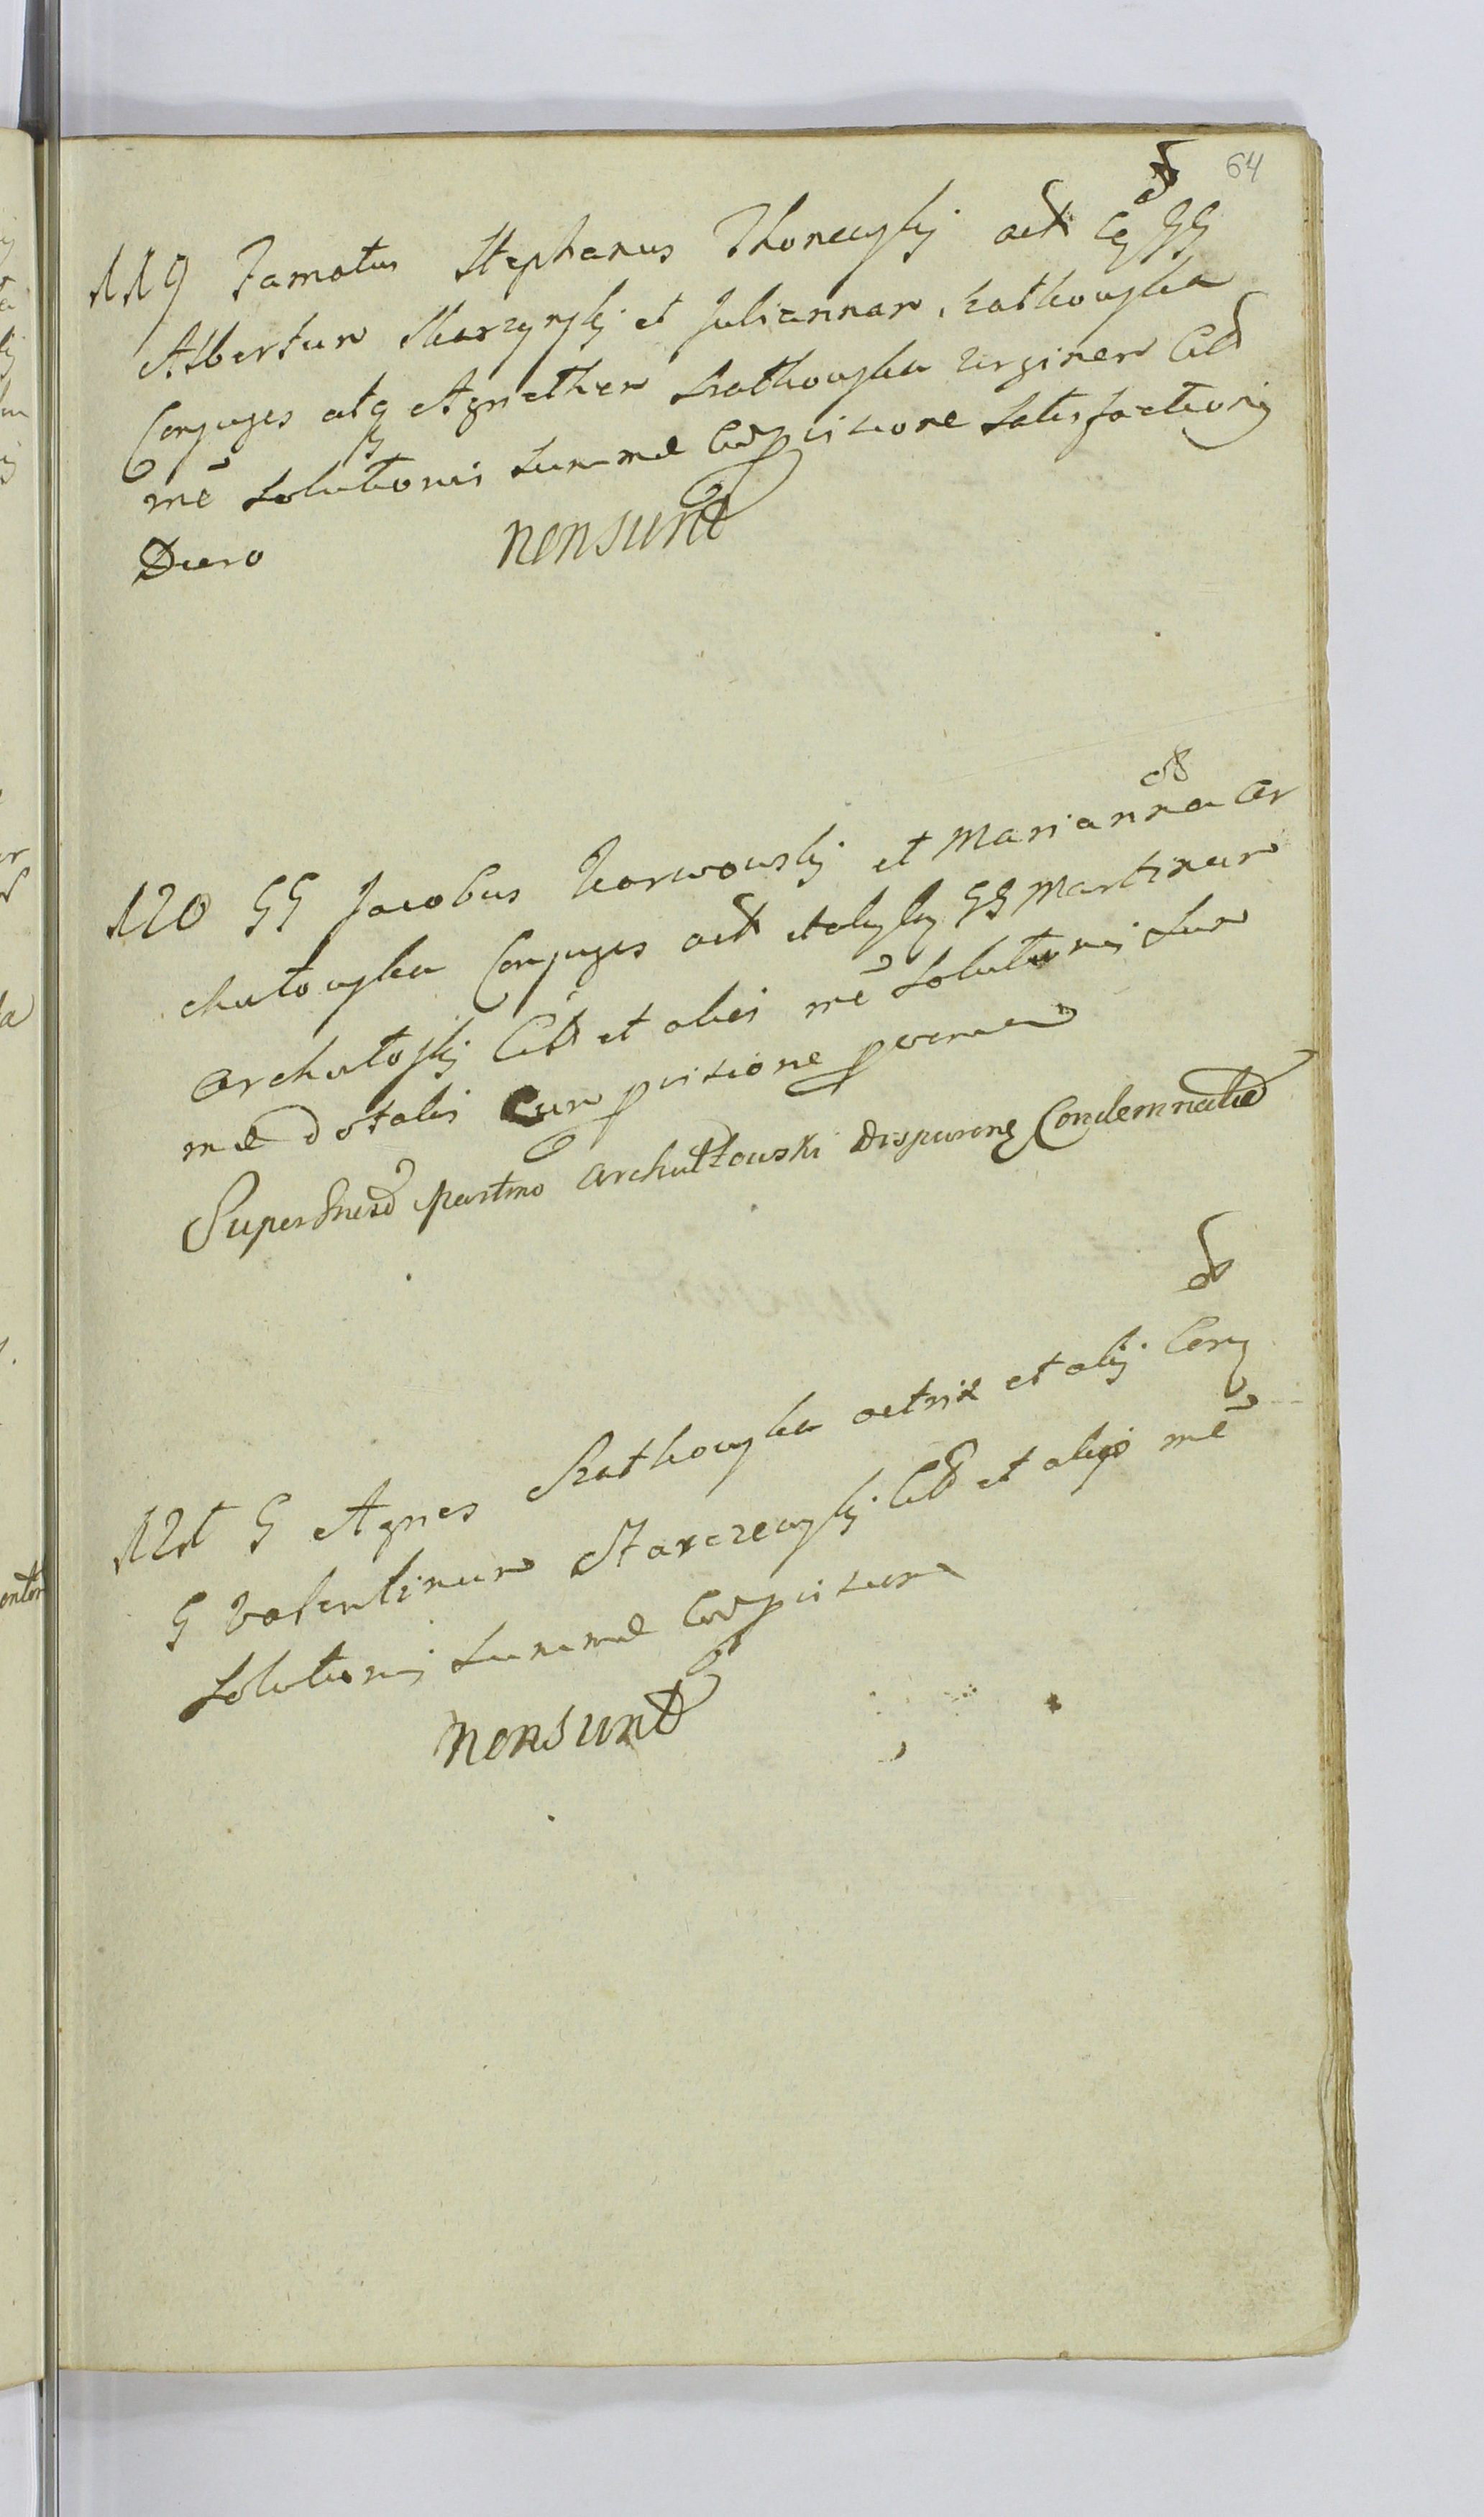 64
119 Famatus Stephanus Thorewskj act Cg GG
Albertum Skarzynskj et Juliannam Szatkowska
Conjuges atq Agnethem Szatkowska Virginem Citt
mē solutionis summae Cum pcisione satisfactionis
Duero nonsunt
120 GG Jacobus Karwowskj et Marianna Ar
chutowska Conjuges act et GG Martinum
Archutoskj Citt et alios mē solutionis sum
mae dotalis Cum pcisione
Super Gneso Martino Archutowski Disparene Condemnatae
121 G Agnes Szatkowska actrix et alij Cong
G Valentinum Starczewskj Citt et alijs mē
solutionis summae Cum pcisione
nonsunt